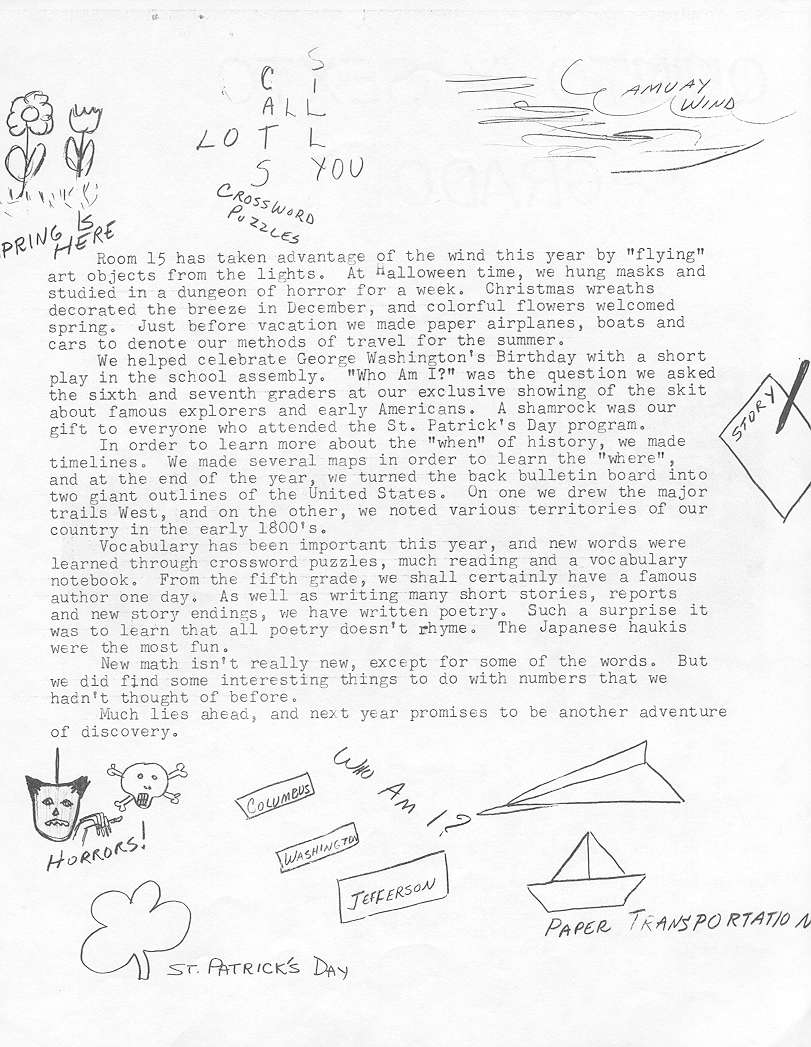 S
C I
A L L
L O T L
S YOU
CROSSWORD
PUZZLES
AMUAY
WIND
SPRING IS
HERE
Room 15 has taken advantage of the wind this year by "flying"
art objects from the lights. At Halloween time, we hung masks and
studied in a dungeon of horror for a week. Christmas wreaths
decorated the breeze in December, and colorful flowers welcomed
spring. Just before vacation we made paper airplanes, boats and
cars to denote our methods of travel for the summer.
We helped celebrate George Washington's Birthday with a short
play in the school assembly. "Who Am I?" was the question we asked
the sixth and seventh graders at our exclusive showing of the skit
about famous explorers and early Americans. A shamrock was our
gift to everyone who attended the St. Patrick's Day program.
In order to learn more about the "when" of history, we made
timelines. We made several maps in order to learn the "where",
and at the end of the year, we turned the back bulletin board into
two giant outlines of the United States. On one we drew the major
trails West, and on the other, we noted various territories of our
country in the early 1800's.
Vocabulary has been important this year, and new words were
learned through crossword puzzles, much reading and a vocabulary
notebook. From the fifth grade, we shall certainly have a famous
author one day. As well as writing many short stories, reports
and new story endings, we have written poetry. Such a surprise it
was to learn that all poetry doesn't rhyme. The Japanese haukis
were the most fun.
New math isn't really new, except for some of the words. But
we did find some interesting things to do with numbers that we
hadn't thought of before.
Much lies ahead, and next year promises to be another adventure
of discovery.
STORY
HORRORS!
COLUMBUS
WASHINGTON
JEFFERSON
WHO AM I?
PAPER TRANSPORTATION
ST. PATRICK'S DAY